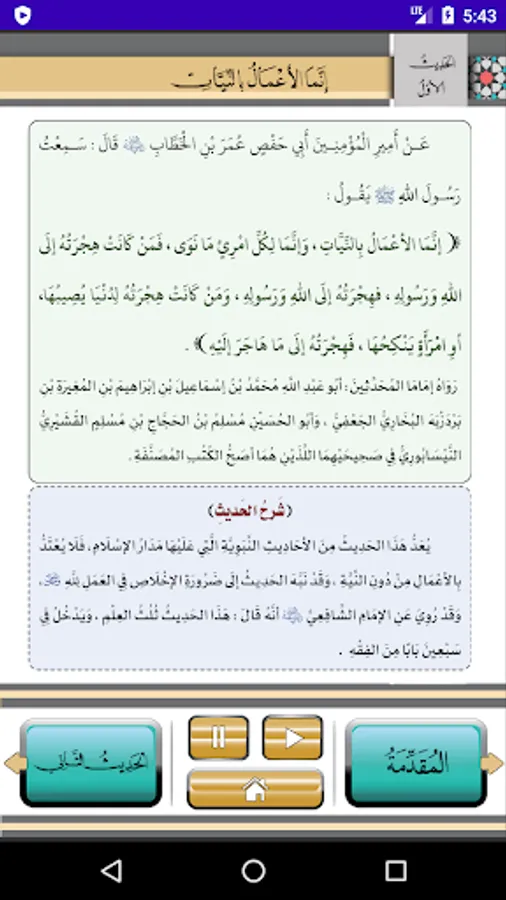 LTE 5:43
الحَدِيثُ
الأَوَّلُ
إِنَّمَا الأَعْمَالُ بِالنِّيَّاتِ
عَنْ أَمِيرِ الْمُؤْمِنِينَ أَبِي حَفْصٍ عُمَرَ بْنِ الْخَطَّابِ ﵁ قَالَ : سَمِعْتُ
رَسُولَ اللهِ ﷺ يَقُولُ :
﴿ إِنَّمَا الأَعْمَالُ بِالنِّيَّاتِ ، وَإِنَّمَا لِكُلِّ امْرِئٍ مَا نَوَى ، فَمَنْ كَانَتْ هِجْرَتُهُ إِلَى
اللهِ وَرَسُولِهِ ، فَهِجْرَتُهُ إِلَى اللهِ وَرَسُولِهِ ، وَمَنْ كَانَتْ هِجْرَتُهُ لِدُنْيَا يُصِيبُهَا،
أَوِ امْرَأَةٍ يَنْكِحُهَا ، فَهِجْرَتُهُ إِلَى مَا هَاجَرَ إِلَيْهِ ﴾ .
رَوَاهُ إِمَامَا المُحَدِّثِينَ: أَبُو عَبْدِ اللهِ مُحَمَّدُ بْنُ إِسْمَاعِيلَ بْنِ إِبْرَاهِيمَ بْنِ المُغِيرَةِ بْنِ
بَرْدِزْبَهْ البُخَارِيُّ الجُعْفِيُّ ، وَأَبُو الحُسَيْنِ مُسْلِمُ بْنُ الحَجَّاجِ بْنِ مُسْلِمٍ القُشَيْرِيُّ
النَّيْسَابُورِيُّ فِي صَحِيحَيْهِمَا اللَّذَيْنِ هُمَا أَصَحُّ الكُتُبِ المُصَنَّفَةِ .
(شَرْحُ الحَدِيثِ)
يُعَدُّ هَذَا الحَدِيثُ مِنَ الأَحَادِيثِ النَّبَوِيَّةِ الَّتِي عَلَيْهَا مَدَارُ الإِسْلَامِ، فَلَا يُعْتَدُّ
بِالأَعْمَالِ مِنْ دُونِ النِّيَّةِ ، وَقَدْ نَبَّهَ الحَدِيثُ إِلَى ضَرُورَةِ الإِخْلَاصِ فِي العَمَلِ لِلهِ ﷻ،
وَقَدْ رُوِيَ عَنِ الإِمَامِ الشَّافِعِيِّ ﵁ أَنَّهُ قَالَ : هَذَا الحَدِيثُ ثُلُثُ العِلْمِ ، وَيَدْخُلُ فِي
سَبْعِينَ بَابًا مِنَ الفِقْهِ .
المُقَدِّمَةُ
الحَدِيثُ الثَّانِي